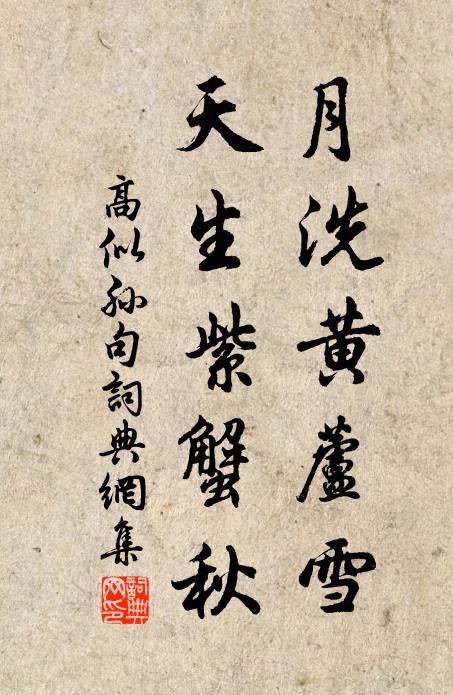 月洗黃蘆雪
天生紫蟹秋
高似孫句詞典網集
詞典
网印